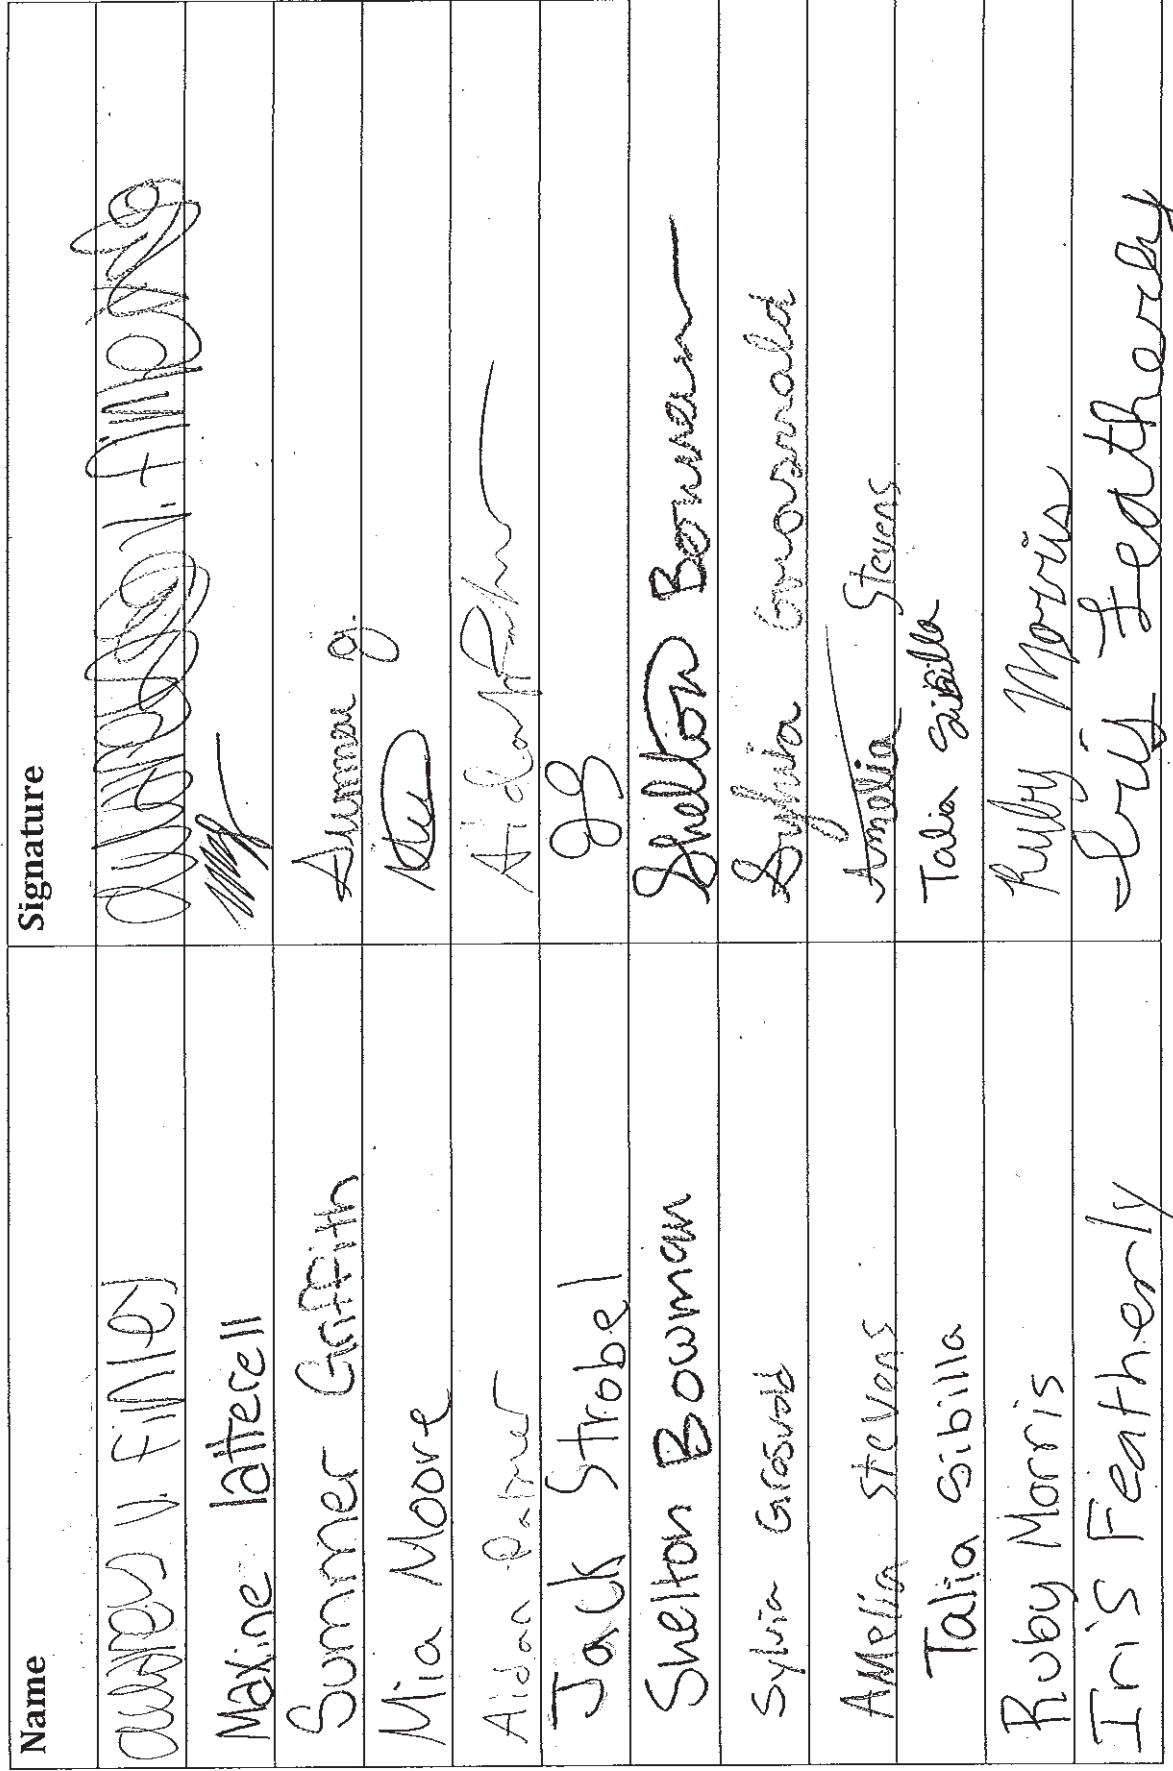 Name Signature
Audrey V. Finley
Maxine latterell
Summer Griffith Summer G.
Mia Moore
Aidan Palmer Aidan
Jack Strobel JS
Shelton Bowman Shelton Bowman
Sylvia Grosvold Sylvia
Amelia Stevens Amelia Stevens
Talia Sibilla Talia Sibilla
Ruby Morris Ruby Morris
Iris Featherly Iris Featherly